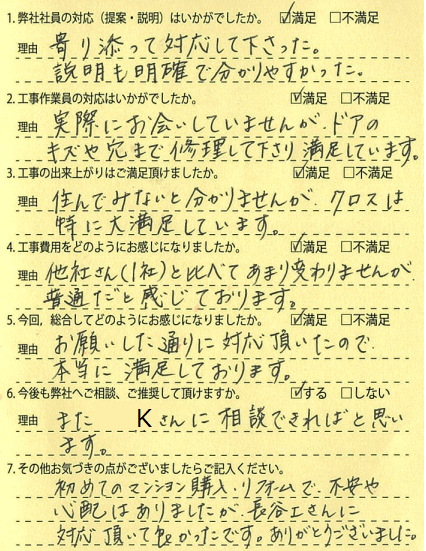 1. 弊社社員の対応（提案・説明）はいかがでしたか。 ☑満足 □不満足
理由 寄り添って対応して下さった。
説明も明確で分かりやすかった。
2. 工事作業員の対応はいかがでしたか。 ☑満足 □不満足
理由 実際にお会いしていませんが、ドアの
キズや穴まで修理して下さり満足しています。
3. 工事の出来上がりはご満足頂けましたか。 ☑満足 □不満足
理由 住んでみないと分かりませんが、クロスは
特に大満足しています。
4. 工事費用をどのようにお感じになりましたか。 ☑満足 □不満足
理由 他社さん(1社)と比べてあまり変わりませんが
普通だと感じております。
5. 今回，総合してどのようにお感じになりましたか。 ☑満足 □不満足
理由 お願いした通りに対応頂いたので
本当に満足しております。
6. 今後も弊社へご相談、ご推奨して頂けますか。 ☑する □しない
理由 また Kさんに相談できればと思い
ます。
7. その他お気づきの点がございましたらご記入ください。
初めてのマンション購入・リフォームで、不安や
心配はありましたが、長谷工さんに
対応頂いて良かったです。ありがとうございました。